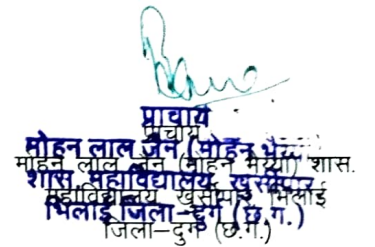 प्राचार्य
प्राचार्य
मोहन लाल जैन (मोहन
मोहन लाल जैन (मोहन भैय्या) शास.
शास. महाविद्यालय, खुर्सीपार
महाविद्यालय, खुर्सीपार भिलाई
भिलाई जिला-दुर्ग (छ.ग.)
जिला-दुर्ग (छ.ग.)